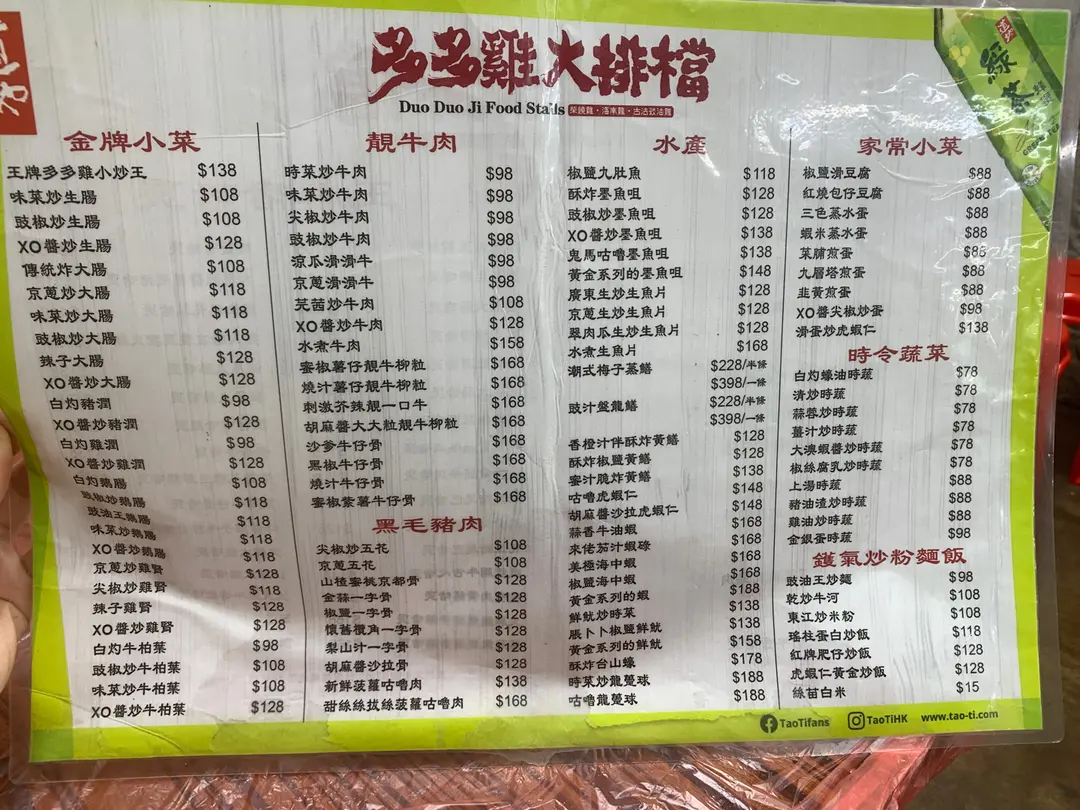 多多雞大排檔
Duo Duo Ji Food Stalls
金牌小菜
王牌多多雞小炒王 $138
味菜炒生腸 $108
豉椒炒生腸 $108
XO醬炒生腸 $128
傳統炸大腸 $108
京蔥炒大腸 $118
味菜炒大腸 $118
豉椒炒大腸 $118
辣子大腸 $128
XO醬炒大腸 $128
白灼豬潤 $98
XO醬炒豬潤 $128
白灼雞潤 $98
XO醬炒雞潤 $128
白灼鵝腸 $108
豉椒炒鵝腸 $118
豉油王鵝腸 $118
味菜炒鵝腸 $118
XO醬炒鵝腸 $118
京蔥炒雞腎 $128
尖椒炒雞腎 $118
辣子雞腎 $128
XO醬炒雞腎 $128
白灼牛柏葉 $98
豉椒炒牛柏葉 $108
味菜炒牛柏葉 $108
XO醬炒牛柏葉 $128
靚牛肉
時菜炒牛肉 $98
味菜炒牛肉 $98
尖椒炒牛肉 $98
豉椒炒牛肉 $98
涼瓜滑滑牛 $98
京蔥滑滑牛 $98
芫茜炒牛肉 $108
XO醬炒牛肉 $128
水煮牛肉 $158
蜜椒薯仔靚牛柳粒 $168
燒汁薯仔靚牛柳粒 $168
刺激芥辣靚一口牛 $168
胡麻醬大大粒靚牛柳粒 $168
沙爹牛仔骨 $168
黑椒牛仔骨 $168
燒汁牛仔骨 $168
蜜椒紫薯牛仔骨 $168
黑毛豬肉
尖椒炒五花 $108
京蔥五花 $108
山楂蜜桃京都骨 $128
金蒜一字骨 $128
椒鹽一字骨 $128
懷舊欖角一字骨 $128
梨山汁一字骨 $128
胡麻醬沙拉骨 $128
新鮮菠蘿咕嚕肉 $138
甜絲絲拔絲菠蘿咕嚕肉 $168
水產
椒鹽九肚魚 $118
酥炸墨魚咀 $128
豉椒炒墨魚咀 $128
XO醬炒墨魚咀 $138
鬼馬咕嚕墨魚咀 $138
黃金系列的墨魚咀 $148
廣東生炒生魚片 $128
京蔥生炒生魚片 $128
翠肉瓜生炒生魚片 $128
水煮生魚片 $168
潮式梅子蒸鱔 $228/半條
$398/一條
豉汁盤龍鱔 $228/半條
$398/一條
香橙汁伴酥炸黃鱔 $128
酥炸椒鹽黃鱔 $128
蜜汁脆炸黃鱔 $138
咕嚕虎蝦仁 $148
胡麻醬沙拉虎蝦仁 $148
蒜香牛油蝦 $168
來佬茄汁蝦碌 $168
美極海中蝦 $168
椒鹽海中蝦 $168
黃金系列的蝦 $188
鮮魷炒時菜 $138
脹卜卜椒鹽鮮魷 $138
黃金系列的鮮魷 $158
酥炸台山蠔 $178
時菜炒龍躉球 $188
咕嚕龍躉球 $188
家常小菜
椒鹽滑豆腐 $88
紅燒包仔豆腐 $88
三色蒸水蛋 $88
蝦米蒸水蛋 $88
菜脯煎蛋 $88
九層塔煎蛋 $88
韭黃煎蛋 $88
XO醬尖椒炒蛋 $98
滑蛋炒虎蝦仁 $138
時令蔬菜
白灼蠔油時蔬 $78
清炒時蔬 $78
蒜蓉炒時蔬 $78
薑汁炒時蔬 $78
大澳蝦醬炒時蔬 $78
椒絲腐乳炒時蔬 $78
上湯時蔬 $88
豬油渣炒時蔬 $88
雞油炒時蔬 $88
金銀蛋時蔬 $98
鑊氣炒粉麵飯
豉油王炒麵 $98
乾炒牛河 $108
東江炒米粉 $108
瑤柱蛋白炒飯 $118
紅牌肥仔炒飯 $128
虎蝦仁黃金炒飯 $128
絲苗白米 $15
道地
綠茶
GREEN TEA
TaoTifans TaoTiHK www.tao-ti.com